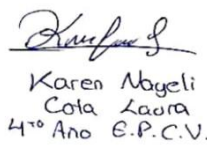 Karen Nayeli
Cota Laura
4to Ano E.P.C.V.